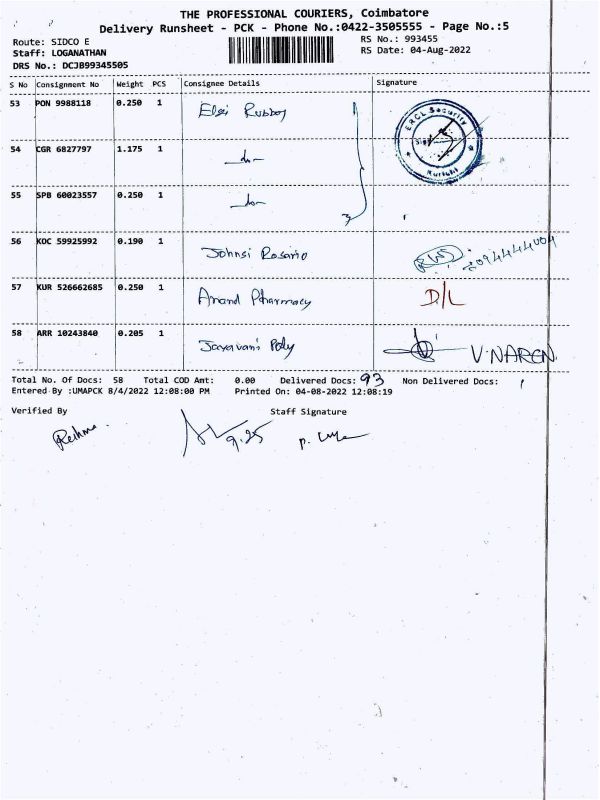 THE PROFESSIONAL COURIERS, Coimbatore
Delivery Runsheet - PCK - Phone No.:0422-3505555 - Page No.:5
Route: SIDCO E
RS No.: 993455
Staff: LOGANATHAN
RS Date: 04-Aug-2022
DRS No.: DCJB99345505
S No Consignment No Weight PCS Consignee Details Signature
53 PON 9988118 0.250 1 Elgi Rubber
ERCL Security
Kurichi
54 CGR 6827797 1.175 1 -do-
55 SPB 60023557 0.250 1 -do-
56 KOC 59925992 0.190 1 Johnsi Rosario
57 KUR 526662685 0.250 1 Anand Pharmacy D/L
58 ARR 10243840 0.205 1 Jayavani Poly V.NAREN
Total No. Of Docs: 58 Total COD Amt: 0.00 Delivered Docs: 93 Non Delivered Docs:
Entered By :UMAPCK 8/4/2022 12:08:00 PM Printed On: 04-08-2022 12:08:19
Verified By Staff Signature
Rekma 9.25